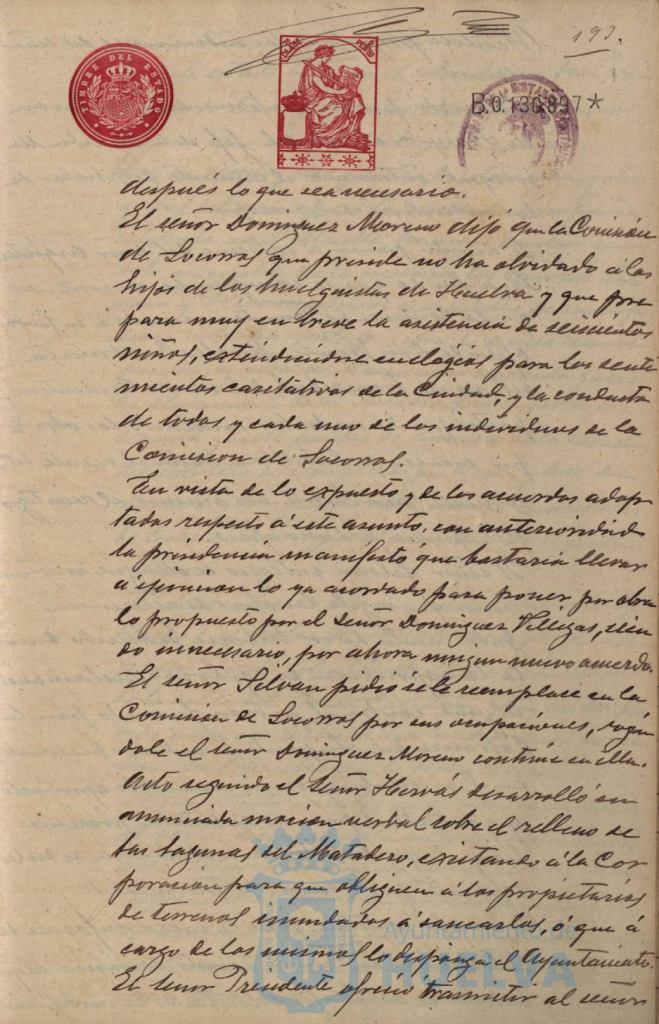 193.
TIMBRE DEL ESTADO
B.0.130.897*
después lo que sea necesario.
El señor Dominguez Moreno dijo que la Comisión
de Socorros que preside no ha olvidado á los
hijos de los huelguistas de Huelva y que pre
para muy en breve la asistencia de seiscientos
niños, estendiendose en elogios para los senti
mientos caritativos de la Ciudad, y la conducta
de todos y cada uno de los individuos de la
Comision de Socorros.
En vista de lo expuesto y de los acuerdos adop
tados respecto á este asunto, con anterioridad
la presidencia manifestó que bastaria llevar
á ejecucion lo ya acordado para poner por obra
lo propuesto por el Señor Dominguez Villegas, sien
do innecesario, por ahora ningun nuevo acuerdo.
El señor Silvan pidió se le reemplace en la
Comisión de Socorros por sus ocupaciones, rogan
dole el señor Dominguez Moreno continúe en ella.
Acto seguido el señor Hervás desarrolló su
anunciada mocion verbal sobre el relleno de
las lagunas del Matadero, exitando á la Cor
poracion para que obliguen á los propietarios
de terrenos inundados á sanearlos, ó que á
cargo de los mismos lo disponga el Ayuntamiento.
El señor Presidente ofreció trasmitir al señor
Ayuntamiento de
HUELVA